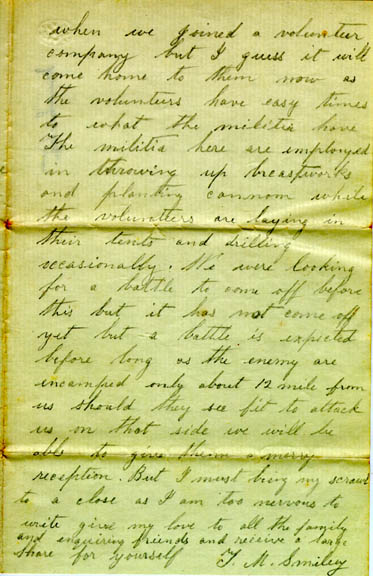 when we joined a volunteer
company but I guess it will
come home to them now as
the volunteers have easy times
to what the militia have
The militia here are imployed
in throwing up breastworks
and planting cannon while
the volunteers are laying in
their tents and drilling
occasionally. We were looking
for a battle to come off before
this but it has not come off
yet but a battle is expected
before long as the enemy are
incamped only about 12 mile from
us should they see fit to attack
us on that side we will be
able to give them a merry
reception. But I must bring my scrawl
to a close as I am too nervous to
write give my love to all the family
and enquiring friends and receive a large
share for yourself T. M. Smiley